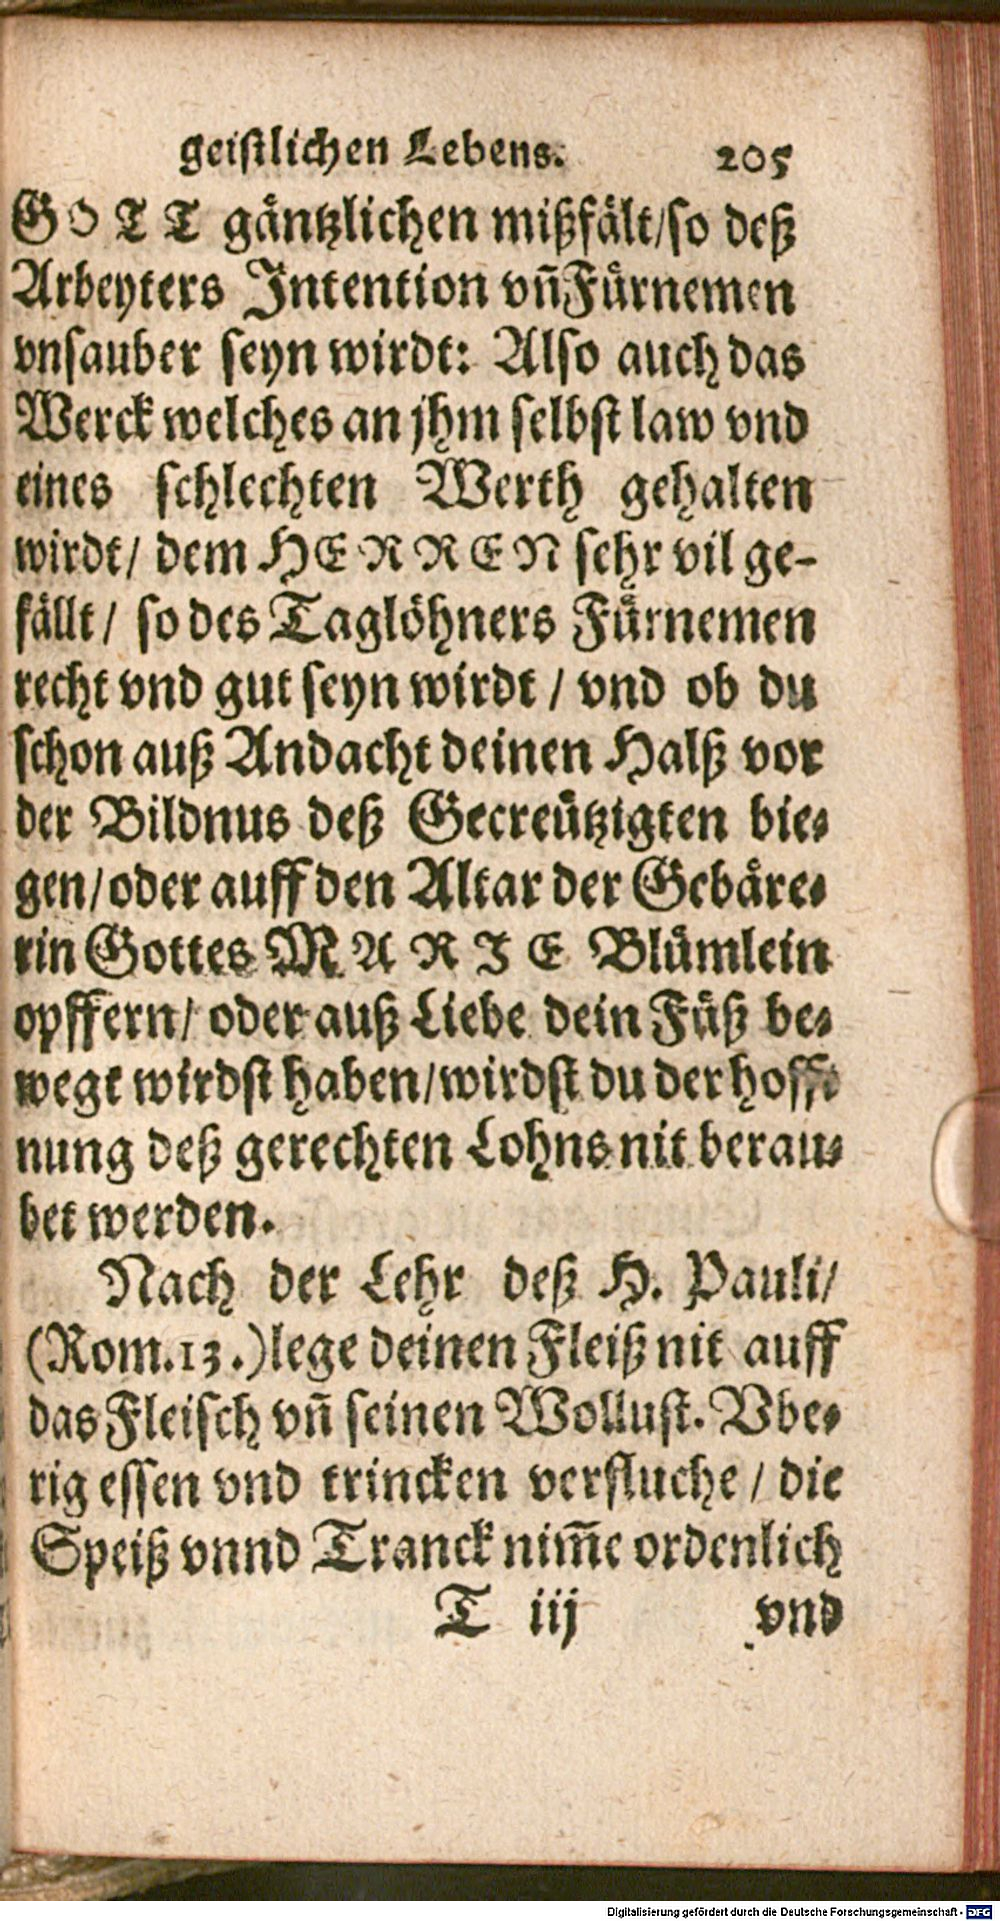 geistlichen Lebens. 205
GOTT gäntzlichen mißfält/so deß
Arbeyters Intention vñ Fürnemen
vnsauber seyn wirdt: Also auch das
Werck welches an jhm selbst law vnd
eines schlechten Werth gehalten
wirdt/ dem HERREN sehr vil ge-
fällt/ so des Taglöhners Fürnemen
recht vnd gut seyn wirdt / vnd ob du
schon auß Andacht deinen Halß vor
der Bildnus deß Gecreützigten bie-
gen/oder auff den Altar der Gebäre-
rin Gottes MARIE Blümlein
opffern/ oder auß Liebe dein Füß be-
wegt wirdst haben/wirdst du der hoff-
nung deß gerechten Lohns nit berau-
bet werden.
Nach der Lehr deß H. Pauli/
(Rom.13.)lege deinen Fleiß nit auff
das Fleisch vñ seinen Wollust. Vbe-
rig essen vnd trincken verfluche / die
Speiß vnnd Tranck nim̃e ordenlich
T iij vnd
Digitalisierung gefördert durch die Deutsche Forschungsgemeinschaft - DFG